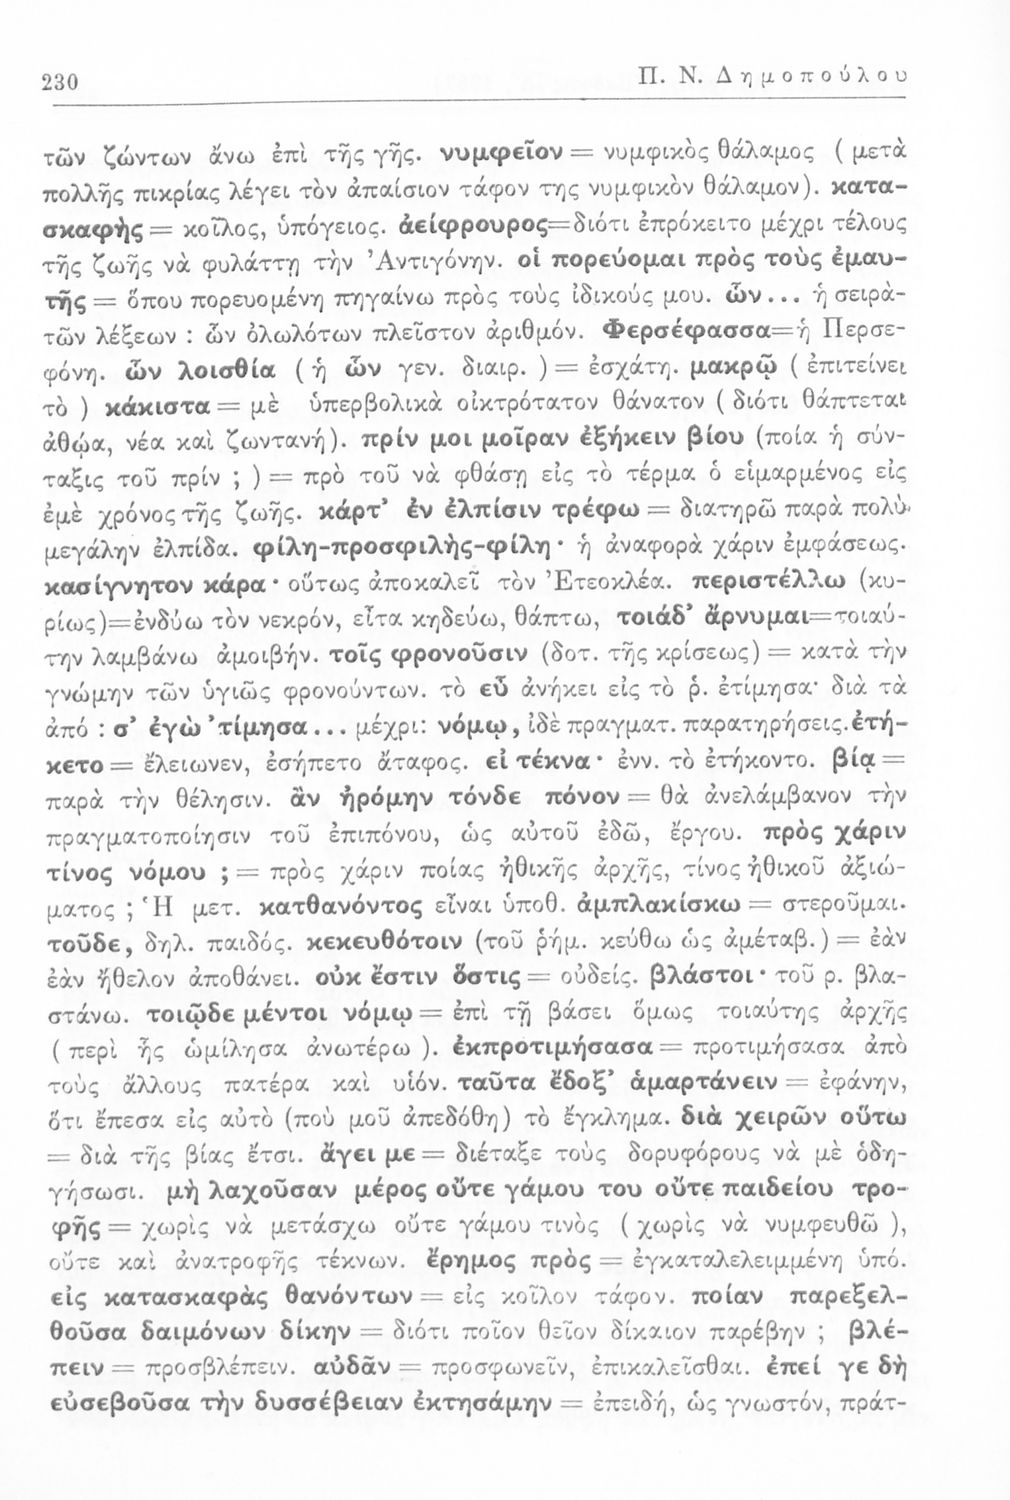 230
Π. Ν. Δημοπούλου
τῶν ζώντων ἄνω ἐπὶ τῆς γῆς. νυμφεῖον = νυμφικὸς θάλαμος ( μετὰ
πολλῆς πικρίας λέγει τὸν ἀπαίσιον τάφον της νυμφικὸν θάλαμον). κατα-
σκαφὴς = κοῖλος, ὑπόγειος. ἀείφρουρος=διότι ἐπρόκειτο μέχρι τέλους
τῆς ζωῆς νὰ φυλάττῃ τὴν Ἀντιγόνην. οἷ πορεύομαι πρὸς τοὺς ἐμαυ-
τῆς = ὅπου πορευομένη πηγαίνω πρὸς τοὺς ἰδικούς μου. ὧν... ἡ σειρὰ-
τῶν λέξεων : ὧν ὀλωλότων πλεῖστον ἀριθμόν. Φερσέφασσα=ἡ Περσε-
φόνη. ὧν λοισθία ( ἡ ὧν γεν. διαιρ. ) = ἐσχάτη. μακρῷ ( ἐπιτείνει
τὸ ) κάκιστα = μὲ ὑπερβολικὰ οἰκτρότατον θάνατον ( διότι θάπτεται
ἀθῴα, νέα καὶ ζωντανή). πρίν μοι μοῖραν ἐξήκειν βίου (ποία ἡ σύν-
ταξις τοῦ πρίν ; ) = πρὸ τοῦ νὰ φθάσῃ εἰς τὸ τέρμα ὁ εἱμαρμένος εἰς
ἐμὲ χρόνος τῆς ζωῆς. κάρτ' ἐν ἐλπίσιν τρέφω = διατηρῶ παρὰ πολὺ
μεγάλην ἐλπίδα. φίλη-προσφιλὴς-φίλη· ἡ ἀναφορὰ χάριν ἐμφάσεως.
κασίγνητον κάρα· οὕτως ἀποκαλεῖ τὸν Ἐτεοκλέα. περιστέλλω (κυ-
ρίως)=ἐνδύω τὸν νεκρόν, εἶτα κηδεύω, θάπτω, τοιάδ' ἄρνυμαι=τοιαύ-
την λαμβάνω ἀμοιβήν. τοῖς φρονοῦσιν (δοτ. τῆς κρίσεως) = κατὰ τὴν
γνώμην τῶν ὑγιῶς φρονούντων. τὸ εὖ ἀνήκει εἰς τὸ ῥ. ἐτίμησα· διὰ τὰ
ἀπό : σ' ἐγὼ 'τίμησα... μέχρι: νόμῳ, ἰδὲ πραγματ. παρατηρήσεις. ἐτή-
κετο = ἔλειωνεν, ἐσήπετο ἄταφος. εἰ τέκνα· ἐνν. τὸ ἐτήκοντο. βίᾳ =
παρὰ τὴν θέλησιν. ἂν ᾐρόμην τόνδε πόνον = θὰ ἀνελάμβανον τὴν
πραγματοποίησιν τοῦ ἐπιπόνου, ὡς αὐτοῦ ἐδῶ, ἔργου. πρὸς χάριν
τίνος νόμου ; = πρὸς χάριν ποίας ἠθικῆς ἀρχῆς, τίνος ἠθικοῦ ἀξιώ-
ματος ; Ἡ μετ. κατθανόντος εἶναι ὑποθ. ἀμπλακίσκω = στεροῦμαι.
τοῦδε, δηλ. παιδός. κεκευθότοιν (τοῦ ῥήμ. κεύθω ὡς ἀμέταβ.) = ἐὰν
ἐὰν ἤθελον ἀποθάνει. οὐκ ἔστιν ὅστις = οὐδείς. βλάστοι· τοῦ ρ. βλα-
στάνω. τοιῷδε μέντοι νόμῳ = ἐπὶ τῇ βάσει ὅμως τοιαύτης ἀρχῆς
( περὶ ἧς ὡμίλησα ἀνωτέρω ). ἐκπροτιμήσασα = προτιμήσασα ἀπὸ
τοὺς ἄλλους πατέρα καὶ υἱόν. ταῦτα ἔδοξ' ἁμαρτάνειν = ἐφάνην,
ὅτι ἔπεσα εἰς αὐτὸ (ποὺ μοῦ ἀπεδόθη) τὸ ἔγκλημα. διὰ χειρῶν οὕτω
= διὰ τῆς βίας ἔτσι. ἄγει με = διέταξε τοὺς δορυφόρους νὰ μὲ ὁδη-
γήσωσι. μὴ λαχοῦσαν μέρος οὔτε γάμου του οὔτε παιδείου τρο-
φῆς = χωρὶς νὰ μετάσχω οὔτε γάμου τινὸς ( χωρὶς νὰ νυμφευθῶ ),
οὔτε καὶ ἀνατροφῆς τέκνων. ἔρημος πρὸς = ἐγκαταλελειμμένη ὑπό.
εἰς κατασκαφὰς θανόντων = εἰς κοῖλον τάφον. ποίαν παρεξελ-
θοῦσα δαιμόνων δίκην = διότι ποῖον θεῖον δίκαιον παρέβην ; βλέ-
πειν = προσβλέπειν. αὐδᾶν = προσφωνεῖν, ἐπικαλεῖσθαι. ἐπεί γε δὴ
εὐσεβοῦσα τὴν δυσσέβειαν ἐκτησάμην = ἐπειδή, ὡς γνωστόν, πράτ-